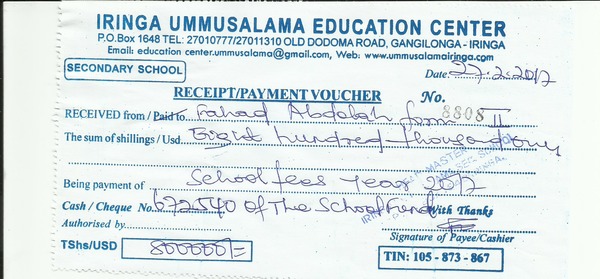 IRINGA UMMUSALAMA EDUCATION CENTER
P.O.Box 1648 TEL: 27010777/27011310 OLD DODOMA ROAD, GANGILONGA - IRINGA
Email: education center.ummusalama@gmail.com, Web: www.ummusalamairinga.com
SECONDARY SCHOOL
Date: 27.2.2017
RECEIPT/PAYMENT VOUCHER
No. 8808
RECEIVED from / Paid to Fahad Abdalah form II
The sum of shillings / Usd Eight hundred thousand only
Being payment of School fees year 2017
Cash / Cheque No. 672540 Of The School Fund With Thanks
Authorised by
Signature of Payee/Cashier
TShs/USD 800000/=
TIN: 105 - 873 - 867